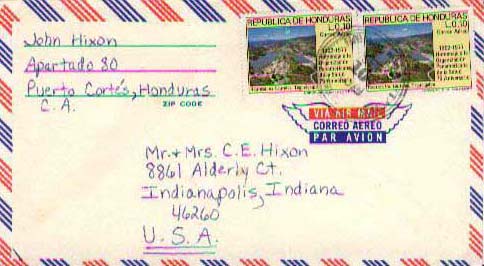 John Hixon
Apartado 80
Puerto Cortés, Honduras
C. A.
ZIP CODE
REPUBLICA DE HONDURAS
L.0.10
Correo Aereo
1902-1977
REPUBLICA DE HONDURAS
L.0.10
Correo Aereo
1902-1977
VIA AIR MAIL
CORREO AEREO
PAR AVION
Mr. + Mrs. C. E. Hixon
8861 Alderly Ct.
Indianapolis, Indiana
46260
U. S. A.